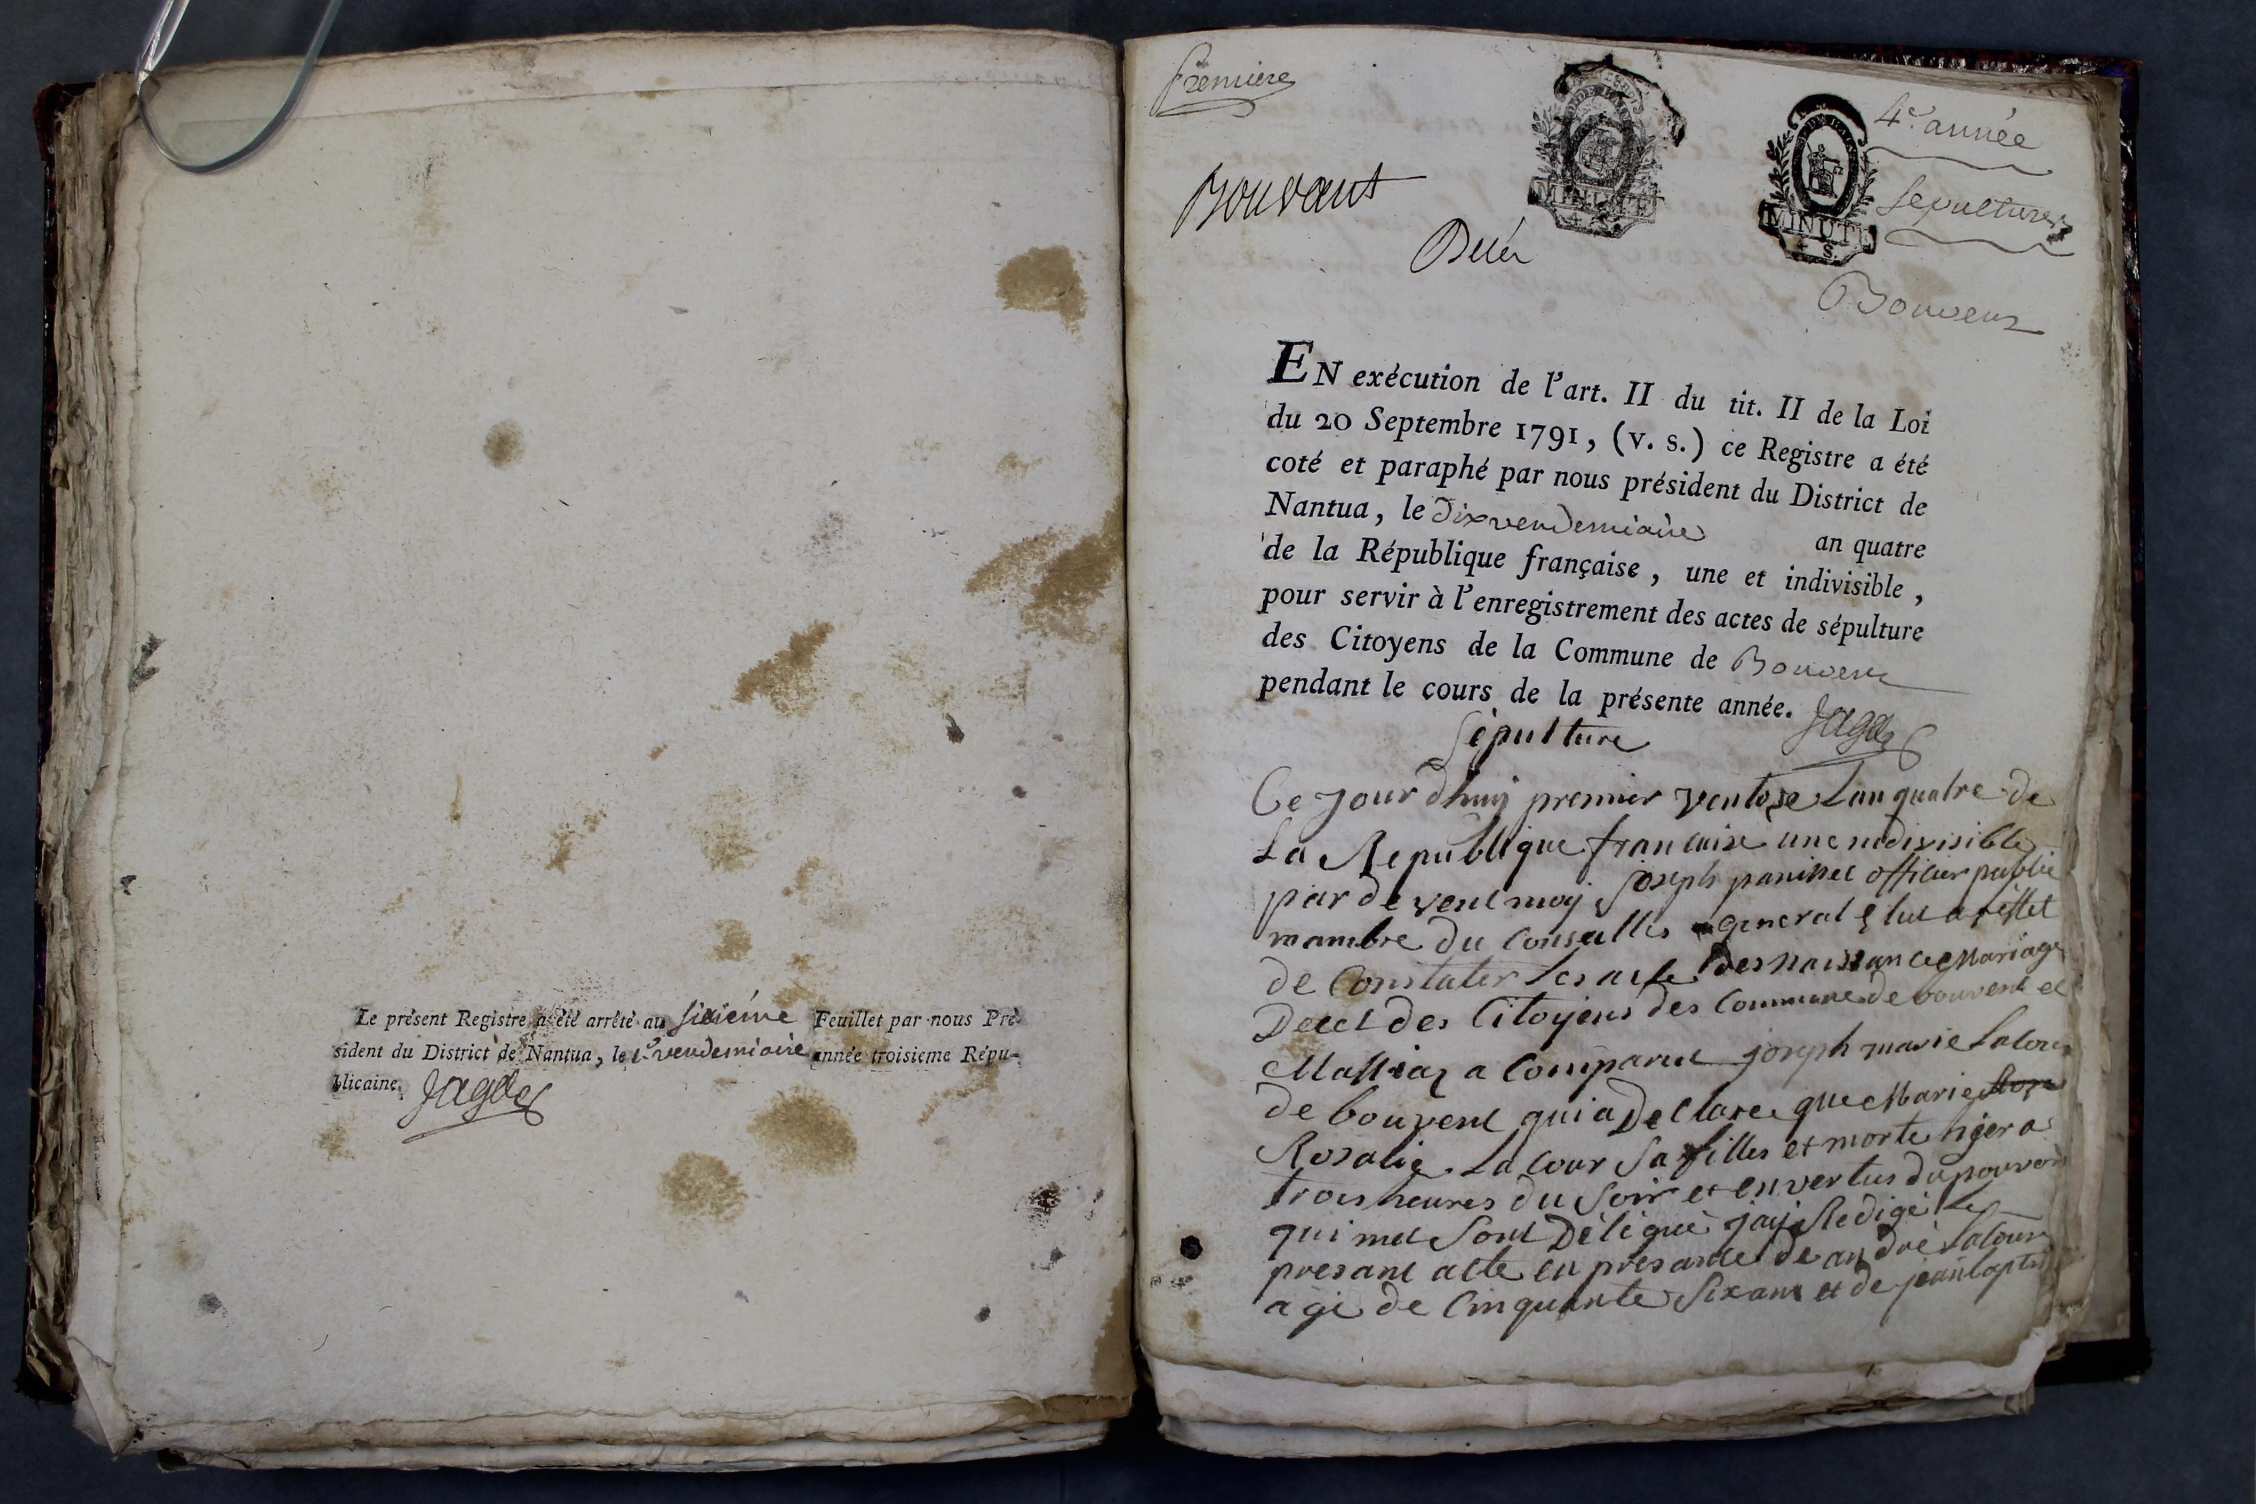 Le présent Registre a été arrêté au sixième Feuillet par nous Pré-
sident du District de Nantua, le 1er vendemiaire année troisieme Répu-
blicaine. Jagot
Premiere
4e année
MINUTE
MINUTE
Sepultures
Bouvant
Décès
Bouvent
EN exécution de l'art. II du tit. II de la Loi
du 20 Septembre 1791, (v. s.) ce Registre a été
coté et paraphé par nous président du District de
Nantua, le dix vendemiaire an quatre
de la République française, une et indivisible,
pour servir à l'enregistrement des actes de sépulture
des Citoyens de la Commune de Bouvent
pendant le cours de la présente année. Jagot
Sépulture
Ce jour dhuij premier ventose Lan quatre de
La Republique francaise une indivisible
par devent moij Joseph officier public
mambre du Conseilles general elut a leffet
de Constater les acte des naissance Mariage
Decet des Citoyens des Commune de bouvent et
Massiaz a Comparut joseph marie Lacour
de bouvent qui a Declare que Marie
Rosalie Lacour Sa filles et morte hijer a
trois heures du Soir et en vertus du pouvoir
qui met Sont Délégué jaij Redigé Le
presant acte en presance de andré Lacour
agé de Cinquante Six ans et de jean